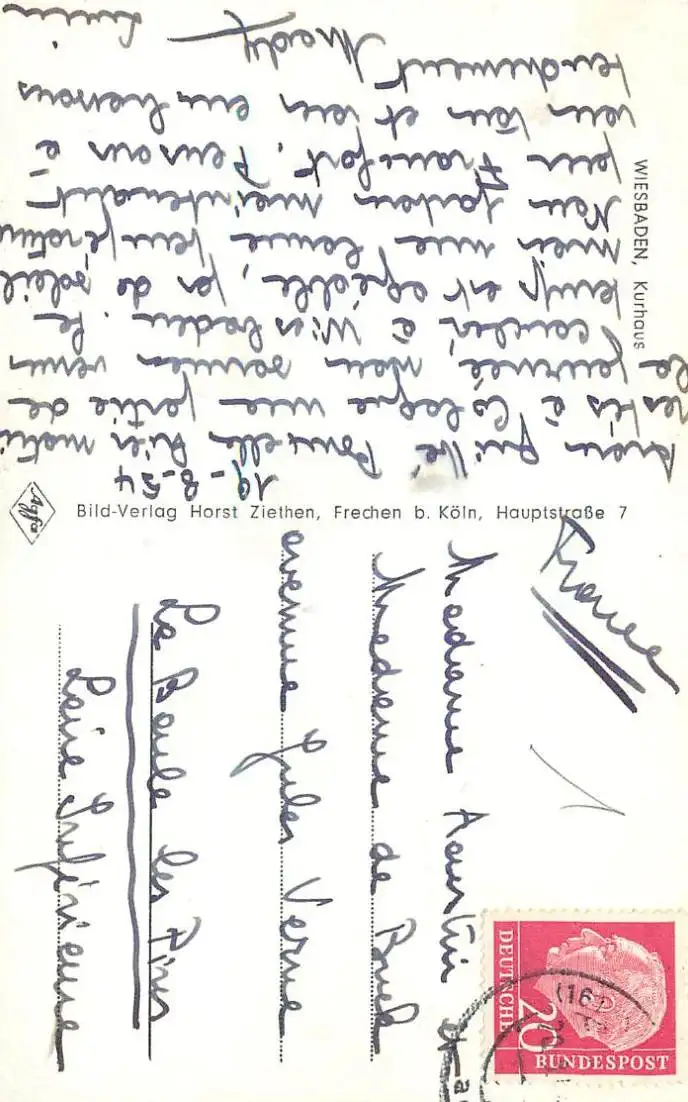 19-8-54
Avons quitté Bruxelles hier matin
restés à Cologne une partie de
la journée, nous sommes venus
coucher à Wiesbaden. Le
pays est splendide, pas de soleil
mais une bonne température
Nous partons maintenant
pour Francfort. Pensons à
vous tous et vous embrassons
tendrement Mady
Lucien
WIESBADEN, Kurhaus
Bild-Verlag Horst Ziethen, Frechen b. Köln, Hauptstraße 7
Agfa
France
Madame Aoustin et
Madame de Buck
avenue Jules Verne
La Baule les Pins
Loire Inférieure
1
DEUTSCHE
20
BUNDESPOST
(16